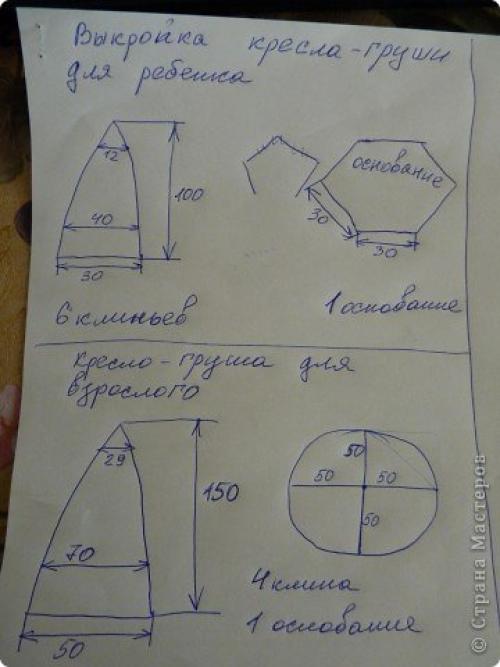 Выкройка кресла-груши
для ребенка
12
100
40
30
6 клиньев
основание
30
30
1 основание
кресло-груша для
взрослого
29
150
70
50
50
50 50
50
4 клина
1 основание
© Страна Мастеров